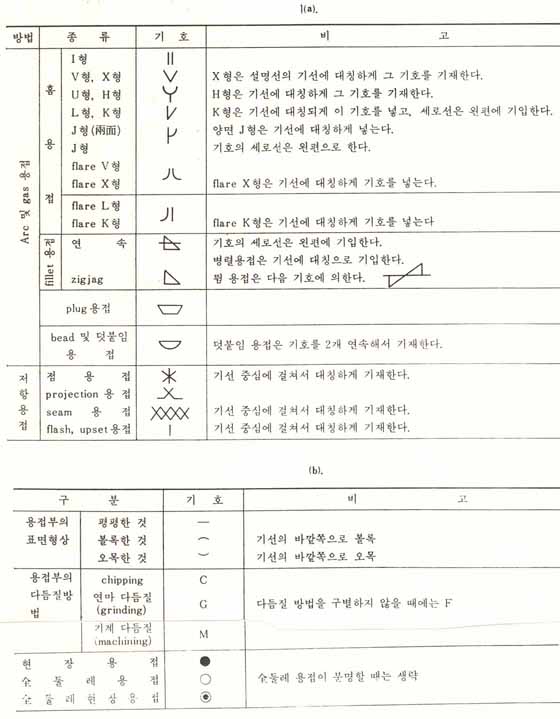 (a).
방법 종 류 기 호 비 고
Arc 및 gas 용접
홈 용 접
I형
V형, X형 X형은 설명선의 기선에 대칭하게 그 기호를 기재한다.
U형, H형 H형은 기선에 대칭하게 그 기호를 기재한다.
L형, K형 K형은 기선에 대칭되게 이 기호를 넣고, 세로선은 왼편에 기입한다.
J형(兩面) 양면 J형은 기선에 대칭하게 넣는다.
J형 기호의 세로선은 왼편으로 한다.
flare V형
flare X형 flare X형은 기선에 대칭하게 기호를 넣는다.
flare L형
flare K형 flare K형은 기선에 대칭하게 기호를 넣는다
fillet 용접
연 속 기호의 세로선은 왼편에 기입한다.
병렬용접은 기선에 대칭으로 기입한다.
zigjag 뜀 용접은 다음 기호에 의한다.
plug용접
bead 및 덧붙임
용 접 덧붙임 용접은 기호를 2개 연속해서 기재한다.
저항용접
점 용 접 기선 중심에 걸쳐서 대칭하게 기재한다.
projection 용 접
seam 용 접 기선 중심에 걸쳐서 대칭하게 기재한다.
flash, upset용접 기선 중심에 걸쳐서 대칭하게 기재한다.
(b).
구 분 기 호 비 고
용접부의 평평한 것 —
표면형상 볼록한 것 ⌒ 기선의 바깥쪽으로 볼록
오목한 것 ⌣ 기선의 바깥쪽으로 오목
용접부의 chipping C
다듬질방 연마 다듬질
법 (grinding) G 다듬질 방법을 구별하지 않을 때에는 F
기계 다듬질
(machining) M
현 장 용 접 ●
全 둘 레 용 접 ○ 全둘레 용접이 분명할 때는 생략
全 둘 레 현 상 용 접 ◉